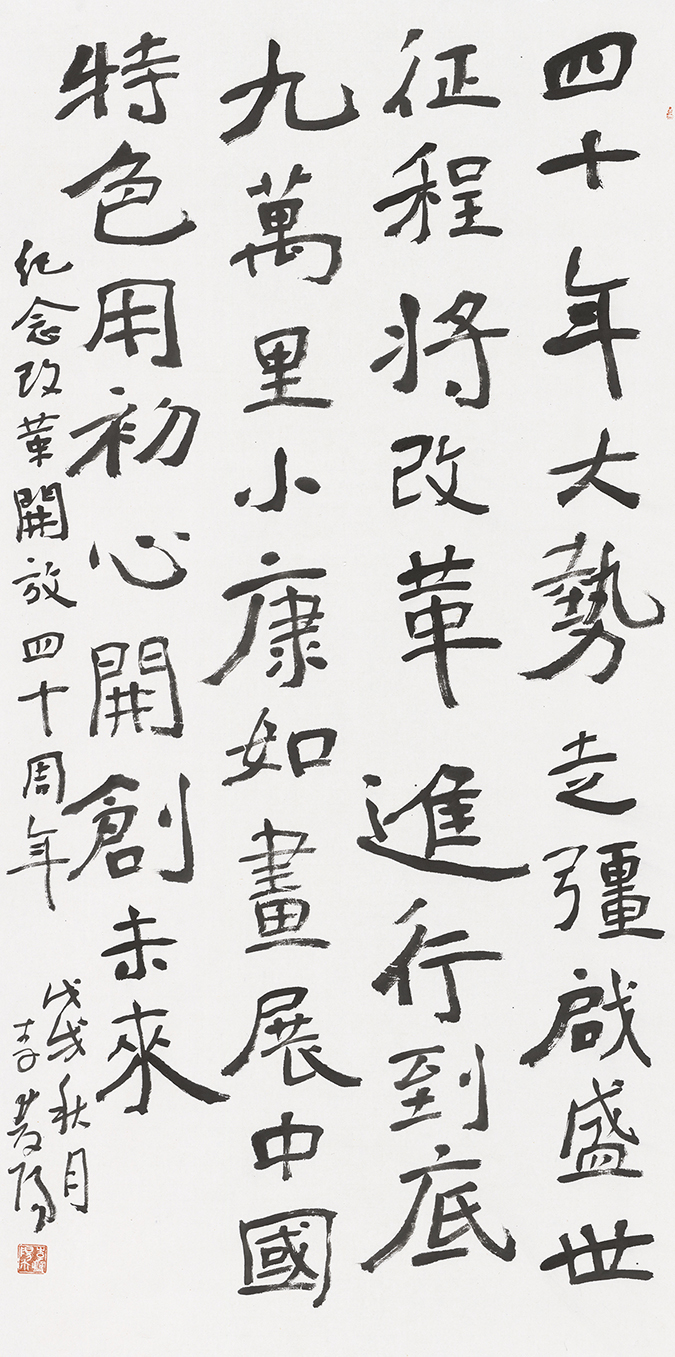 四十年大勢走彊啟盛世
征程将改革進行到底
九萬里小康如畫展中國
特色用初心開創未來
紀念改革開放四十周年
戊戌秋月
李